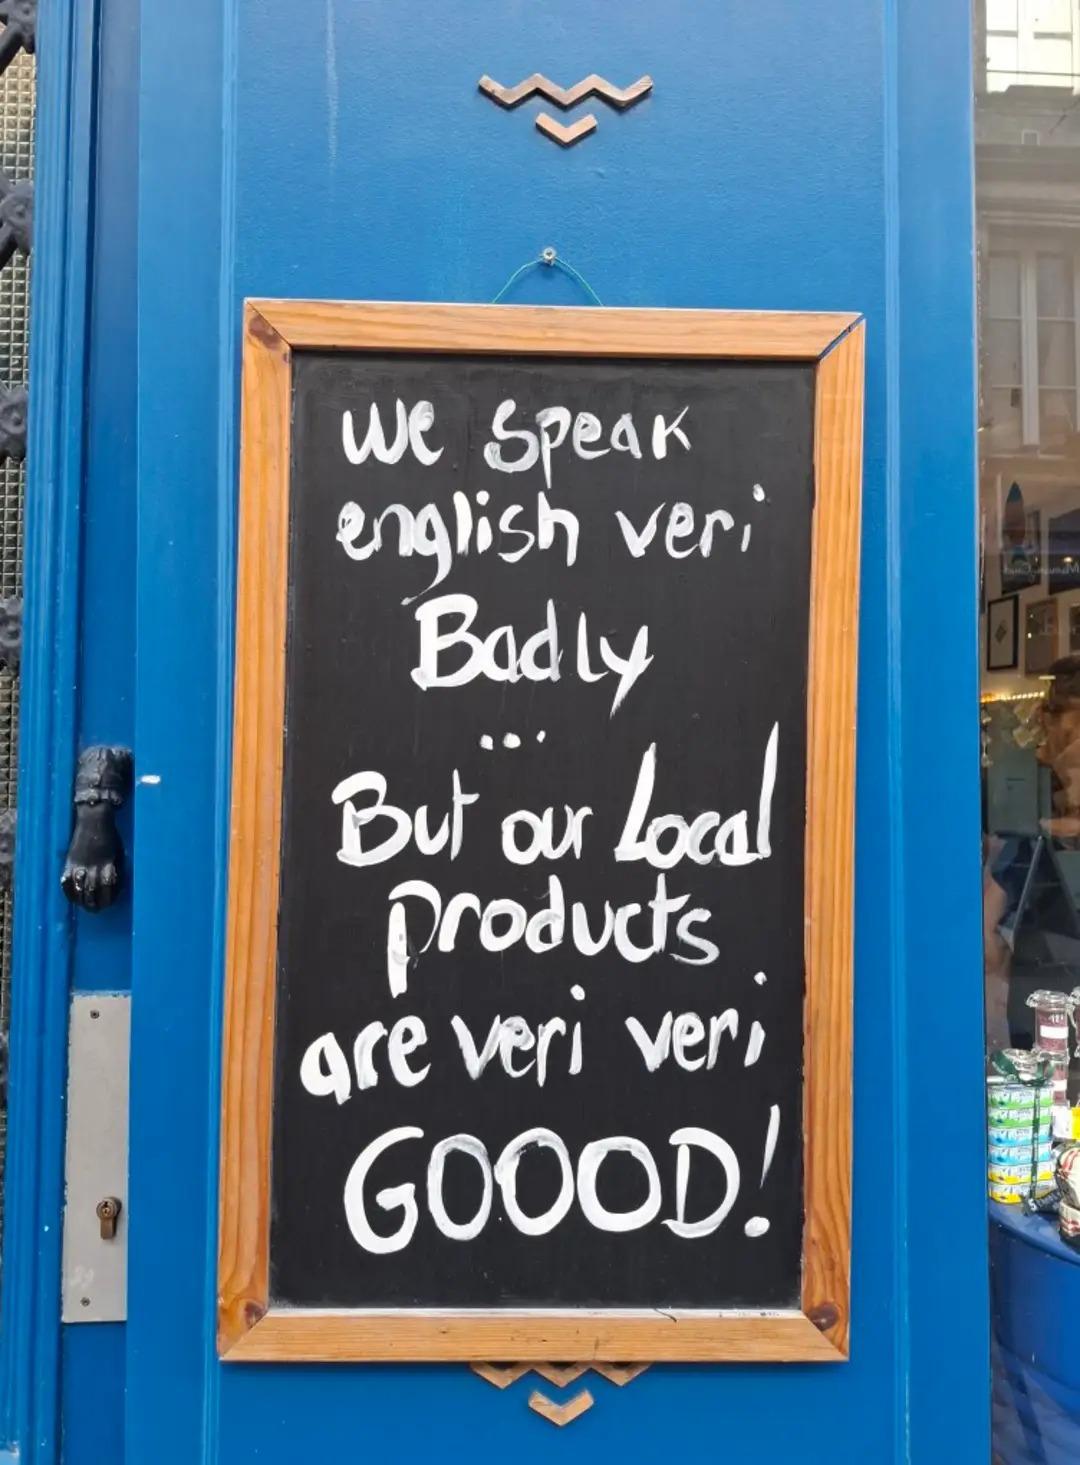 We speak
english veri
Badly
...
But our Local
products
are veri veri
GOOOD!